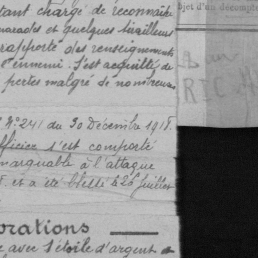 tant chargé de reconnaitre
marades et quelques tirailleurs
rapporté des renseignements
l'ennemi. S'est acquitté de
pertes malgré de nombreuses
N°241 du 30 Décembre 1918.
officier s'est comporté
marquable à l'attaque
et a été blessé le 26 juillet
orations
avec l'étoile d'argent
bjet d'un décompte